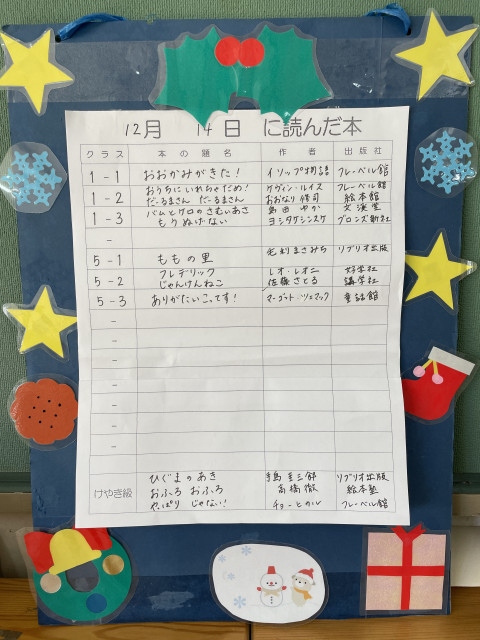 12月 14日 に読んだ本
クラス 本の題名 作者 出版社
1-1 おおかみがきた! イソップ物語 フレーベル館
1-2 おうちにいれちゃだめ! ケヴィン・ルイス フレーベル館
だーるまさん だーるまさん おなり修司 絵本館
1-3 バムとケロのさむいあさ 島田ゆか 文溪堂
もうぬげない ヨシタケシンスケ ブロンズ新社
-
5-1 ももの里 毛利まさみち リブリオ出版
5-2 フレデリック レオ・レオニ 好学社
じゃんけんねこ 佐藤さとる 講学社
5-3 ありがたいこってす! マーゴット・ツェマック 童話館
-
-
-
-
-
-
-
けやき級 ひぐまのあき 手島圭三郎 リブリオ出版
おふろ おふろ 高橋徹 絵本塾
やっぱり じゃない! チョーヒカル フレーベル館